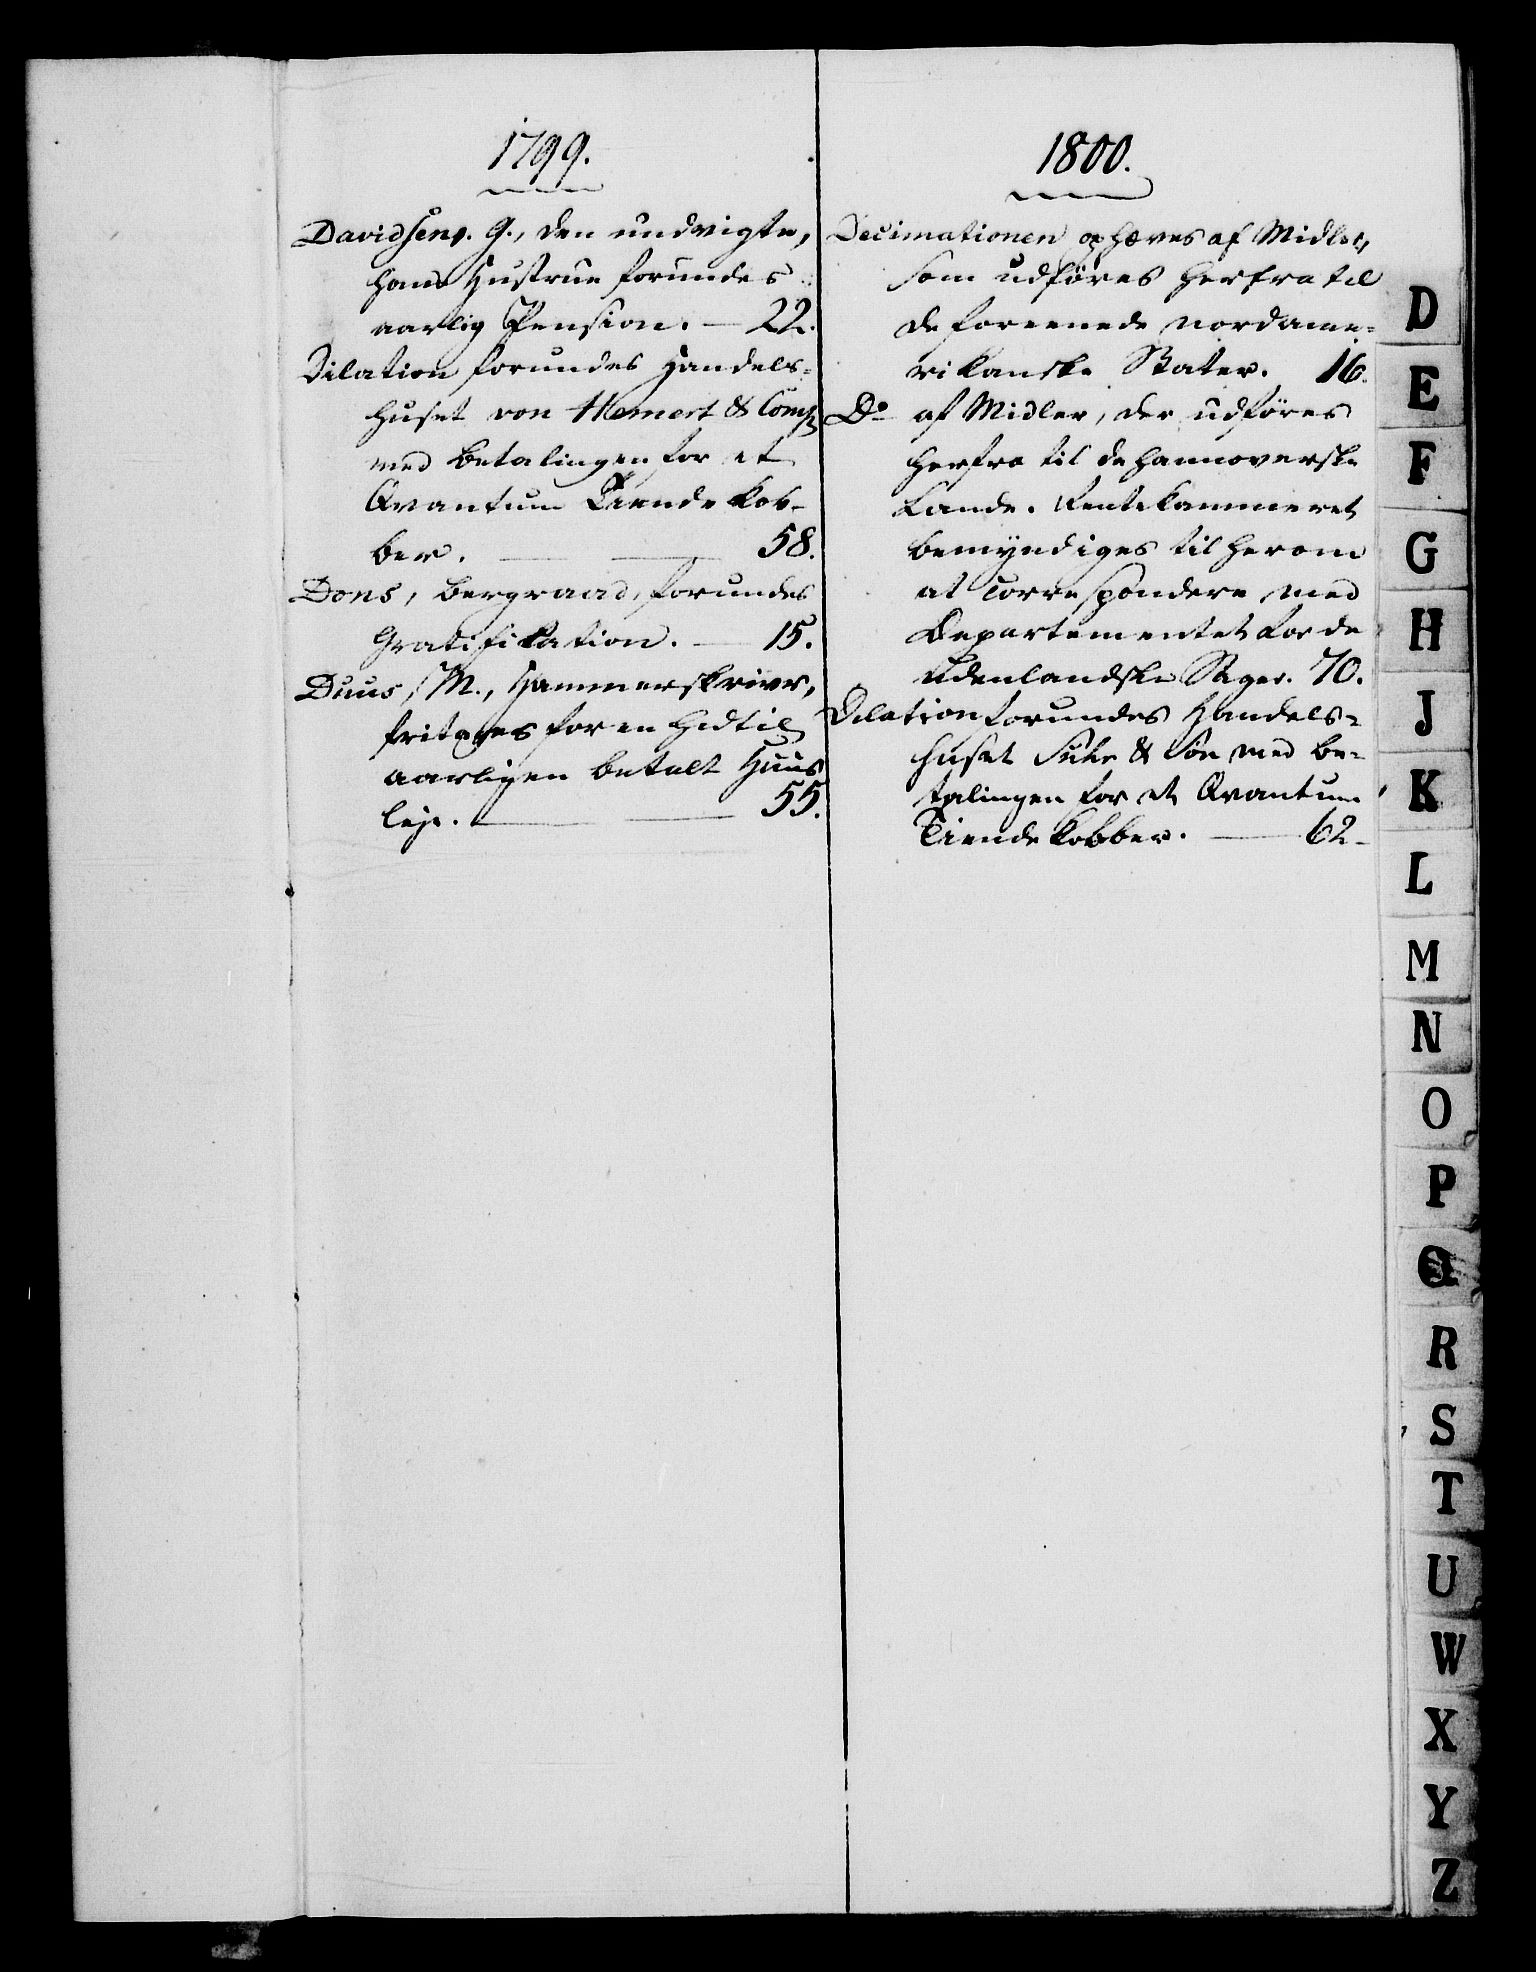 1799.
Davidsens. G., den undvigte,
hans Hustrue forundes
aarlig Pension. — 22.
Dilation forundes Handels-
huset von Hemert & Comp
med betalingen for et
Qvantum Tiende Kob-
ber. — — 58.
Dons, bergraad, forundes
Gratifikation. — 15.
Duus, M., Hammerskriver,
fritages for en hidtil
aarligen betalt Huus
leje. — — 55.
1800.
Decimationen ophæves af Midler,
som udføres herfra til
de foreenede nordame-
rikanske Stater. 16.
Do af Midler, der udføres
herfra til de hannoverske
Lande. Rentekammeret
bemyndiges til herom
at correspondere med
Departementet for de
udenlandske Sager. 70.
Dilation forundes Handels-
huset Suhr & Søn med be-
talingen for et Qvantum
Tiende Kobber. — 62-
D
E
F
G
H
J
K
L
M
N
O
P
Q
R
S
T
U
W
X
Y
Z